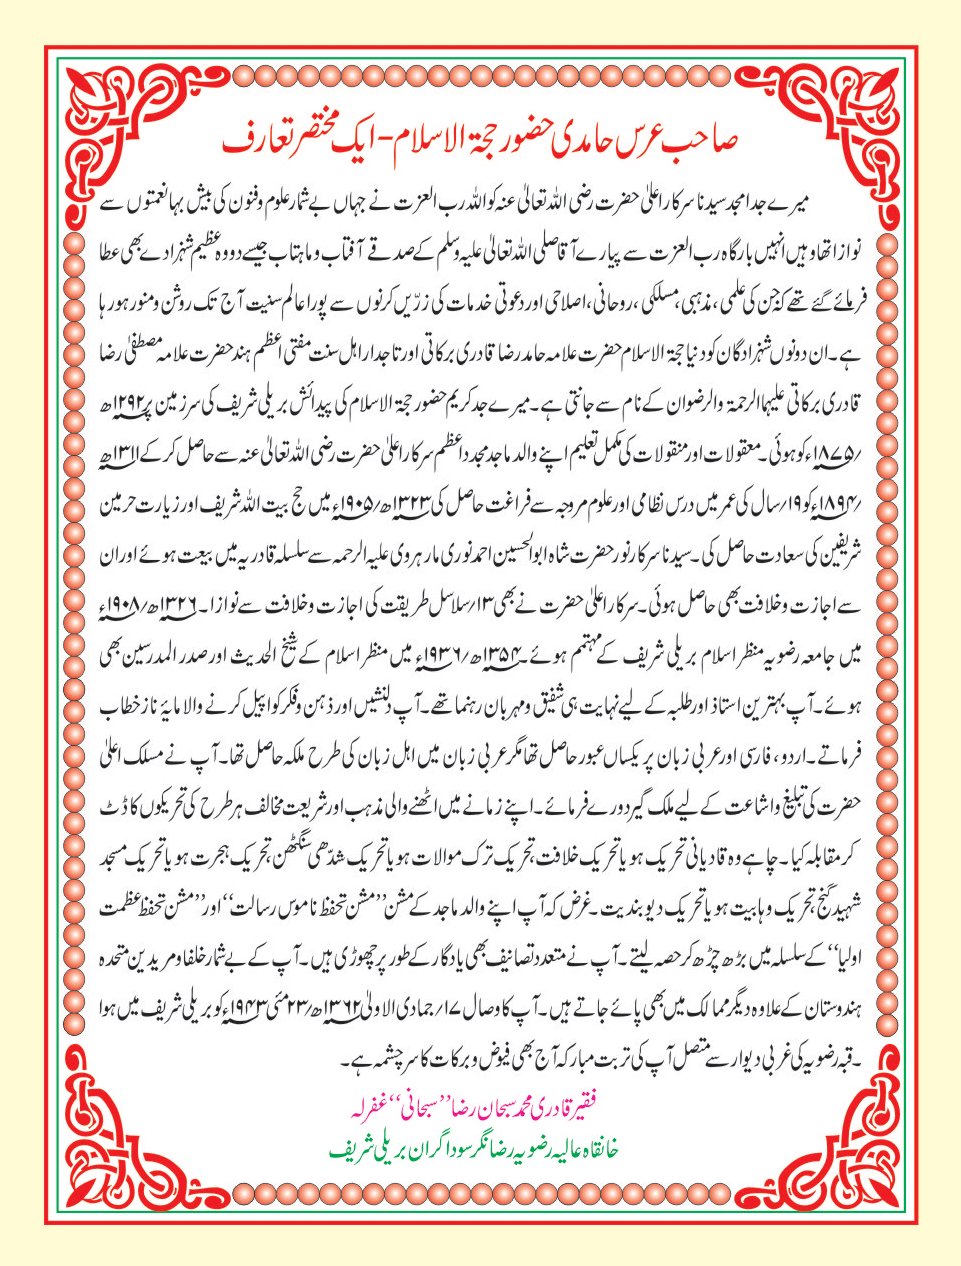 صاحب عرس حامدی حضور حجۃ الاسلام - ایک مختصر تعارف
میرے جد امجد سیدنا سرکار اعلیٰ حضرت رضی اللہ تعالیٰ عنہ کو اللہ رب العزت نے جہاں بے شمار علوم وفنون کی بیش بہا نعمتوں سے
نوازا تھا وہیں انہیں بارگاہ رب العزت سے پیارے آقا صلی اللہ تعالیٰ علیہ وسلم کے صدقے آفتاب و ماہتاب جیسے دو وہ عظیم شہزادے بھی عطا
فرمائے گئے تھے کہ جن کی علمی، مذہبی، مسلکی، روحانی، اصلاحی اور دعوتی خدمات کی زرّیں کرنوں سے پورا عالم سنیت آج تک روشن و منور ہو رہا
ہے۔ ان دونوں شہزادگان کو دنیا حجۃ الاسلام حضرت علامہ حامد رضا قادری برکاتی اور تاجدار اہل سنت مفتی اعظم ہند حضرت علامہ مصطفیٰ رضا
قادری برکاتی علیہما الرحمۃ والرضوان کے نام سے جانتی ہے۔ میرے جد کریم حضور حجۃ الاسلام کی پیدائش بریلی شریف کی سرزمین پر ۱۲۹۲ھ
/۱۸۷۵ء کو ہوئی۔ معقولات اور منقولات کی مکمل تعلیم اپنے والد ماجد مجدد اعظم سرکار اعلیٰ حضرت رضی اللہ تعالیٰ عنہ سے حاصل کر کے ۱۳۱۱ھ
/۱۸۹۴ء کو ۱۹/سال کی عمر میں درس نظامی اور علوم مروجہ سے فراغت حاصل کی ۱۳۲۳ھ/۱۹۰۵ء میں حج بیت اللہ شریف اور زیارت حرمین
شریفین کی سعادت حاصل کی۔ سیدنا سرکار نور حضرت شاہ ابوالحسین احمد نوری مارہروی علیہ الرحمہ سے سلسلہ قادریہ میں بیعت ہوئے اور ان
سے اجازت و خلافت بھی حاصل ہوئی۔ سرکار اعلیٰ حضرت نے بھی ۱۳/سلاسل طریقت کی اجازت و خلافت سے نوازا۔ ۱۳۲۶ھ/۱۹۰۸ء
میں جامعہ رضویہ منظر اسلام بریلی شریف کے مہتمم ہوئے۔ ۱۳۵۴ھ/۱۹۳۶ء میں منظر اسلام کے شیخ الحدیث اور صدر المدرسین بھی
ہوئے۔ آپ بہترین استاذ اور طلبہ کے لیے نہایت ہی شفیق و مہربان رہنما تھے۔ آپ دلنشیں اور ذہن و فکر کو اپیل کرنے والا مایۂ ناز خطاب
فرماتے۔ اردو، فارسی اور عربی زبان پر یکساں عبور حاصل تھا مگر عربی زبان میں اہل زبان کی طرح ملکہ حاصل تھا۔ آپ نے مسلک اعلیٰ
حضرت کی تبلیغ و اشاعت کے لیے ملک گیر دورے فرمائے۔ اپنے زمانے میں اٹھنے والی مذہب اور شریعت مخالف ہر طرح کی تحریکوں کا ڈٹ
کر مقابلہ کیا۔ چاہے وہ قادیانی تحریک ہو یا تحریک خلافت، تحریک ترک موالات ہو یا تحریک شدّھی سنگٹھن، تحریک ہجرت ہو یا تحریک مسجد
شہید گنج، تحریک وہابیت ہو یا تحریک دیوبندیت۔ غرض کہ آپ اپنے والد ماجد کے مشن ”مشن تحفظ ناموس رسالت“ اور ”مشن تحفظ عظمت
اولیا“ کے سلسلہ میں بڑھ چڑھ کر حصہ لیتے۔ آپ نے متعدد تصانیف بھی یادگار کے طور پر چھوڑی ہیں۔ آپ کے بے شمار خلفا و مریدین متحدہ
ہندوستان کے علاوہ دیگر ممالک میں بھی پائے جاتے ہیں۔ آپ کا وصال ۱۷/جمادی الاولیٰ ۱۳۶۲ھ/۲۳مئی ۱۹۴۳ء کو بریلی شریف میں ہوا
۔ قبہ رضویہ کی غربی دیوار سے متصل آپ کی تربت مبارکہ آج بھی فیوض و برکات کا سرچشمہ ہے۔
فقیر قادری محمد سبحان رضا ”سبحانی“ غفرلہ
خانقاہ عالیہ رضویہ رضا نگر سوداگران بریلی شریف